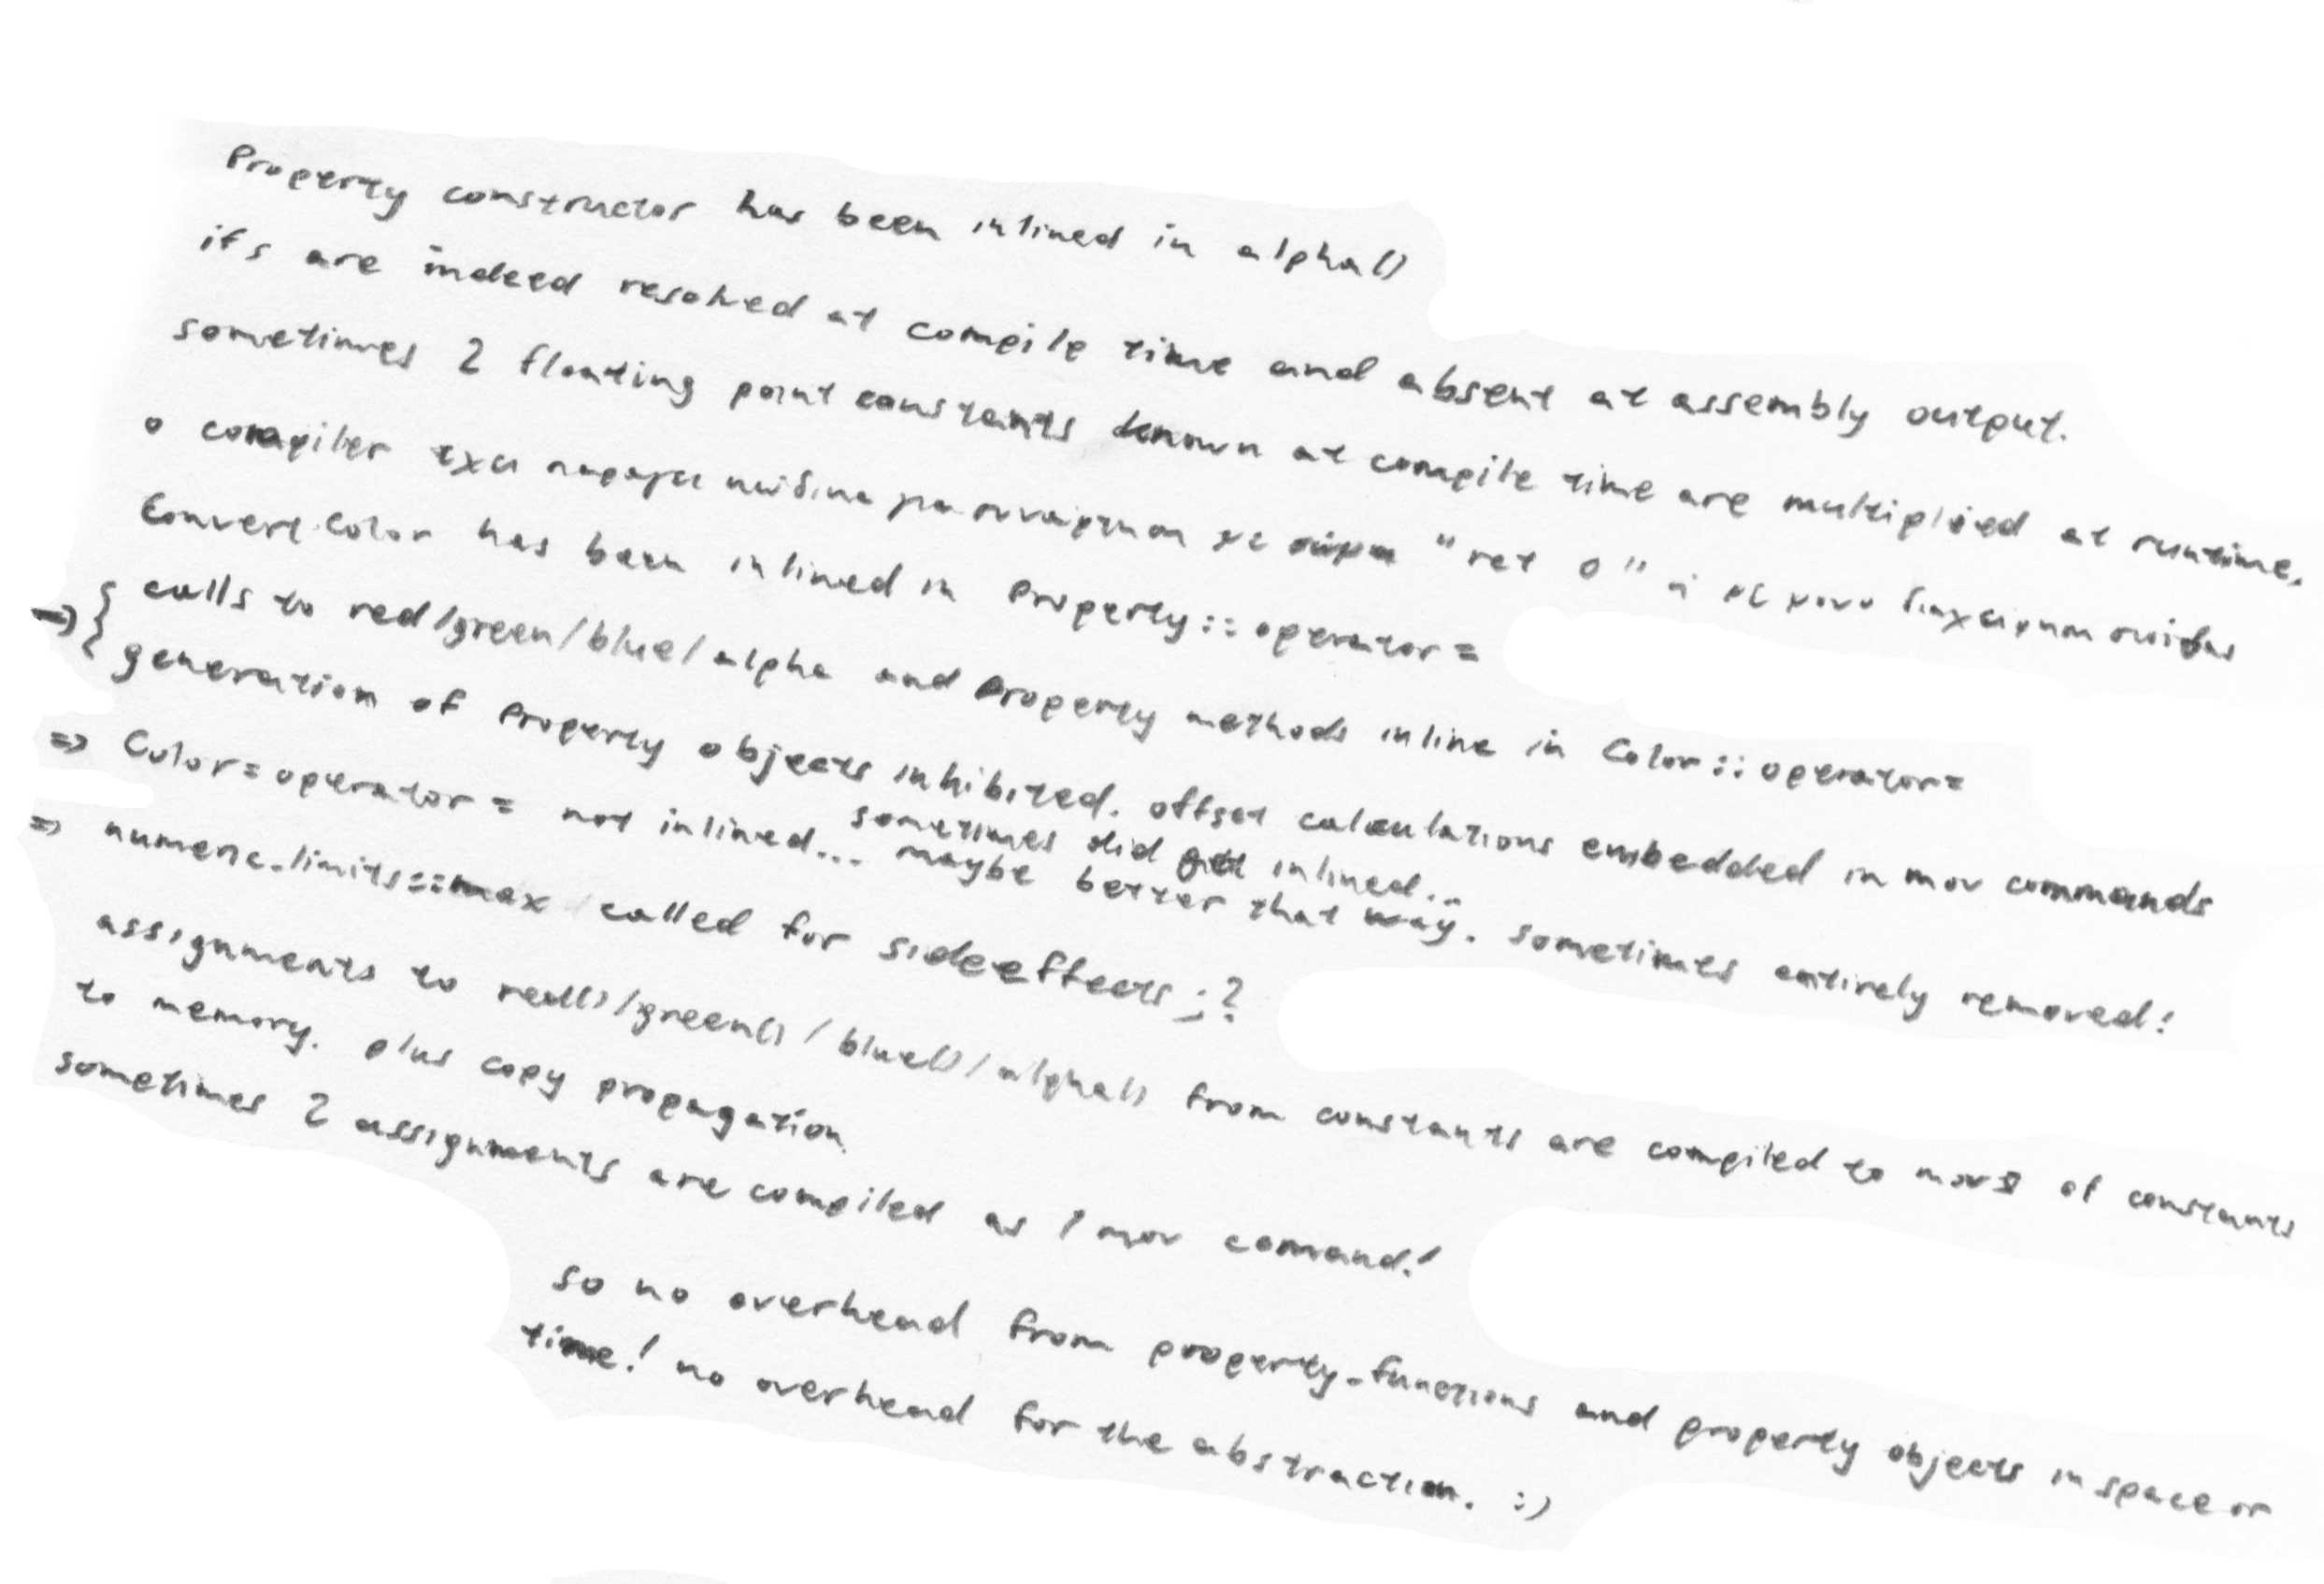 Property constructor has been inlined in alpha()
ifs are indeed resolved at compile time and absent at assembly output.
sometimes 2 floating point constants known at compile time are multiplied at runtime.
ο compiler έχει παράξει κώδικα για συνάρτηση με σώμα "ret 0" ή με κοινό διαχείριση
ConvertColor has been inlined in Property::operator=
=> { calls to red/green/blue/alpha and Property methods inline in Color::operator=
generation of Property objects inhibited. offset calculations embedded in mov commands
sometimes did get inlined..
=> Color=operator= not inlined... maybe better that way. sometimes entirely removed!
=> numeric_limits::max called for sideeffects ;?
assignments to red()/green()/blue()/alpha() from constants are compiled to movs of constants
to memory. plus copy propagation
sometimes 2 assignments are compiled as 1 mov comand!
so no overhead from property-functions and property objects in space or
time! no overhead for the abstraction. :)